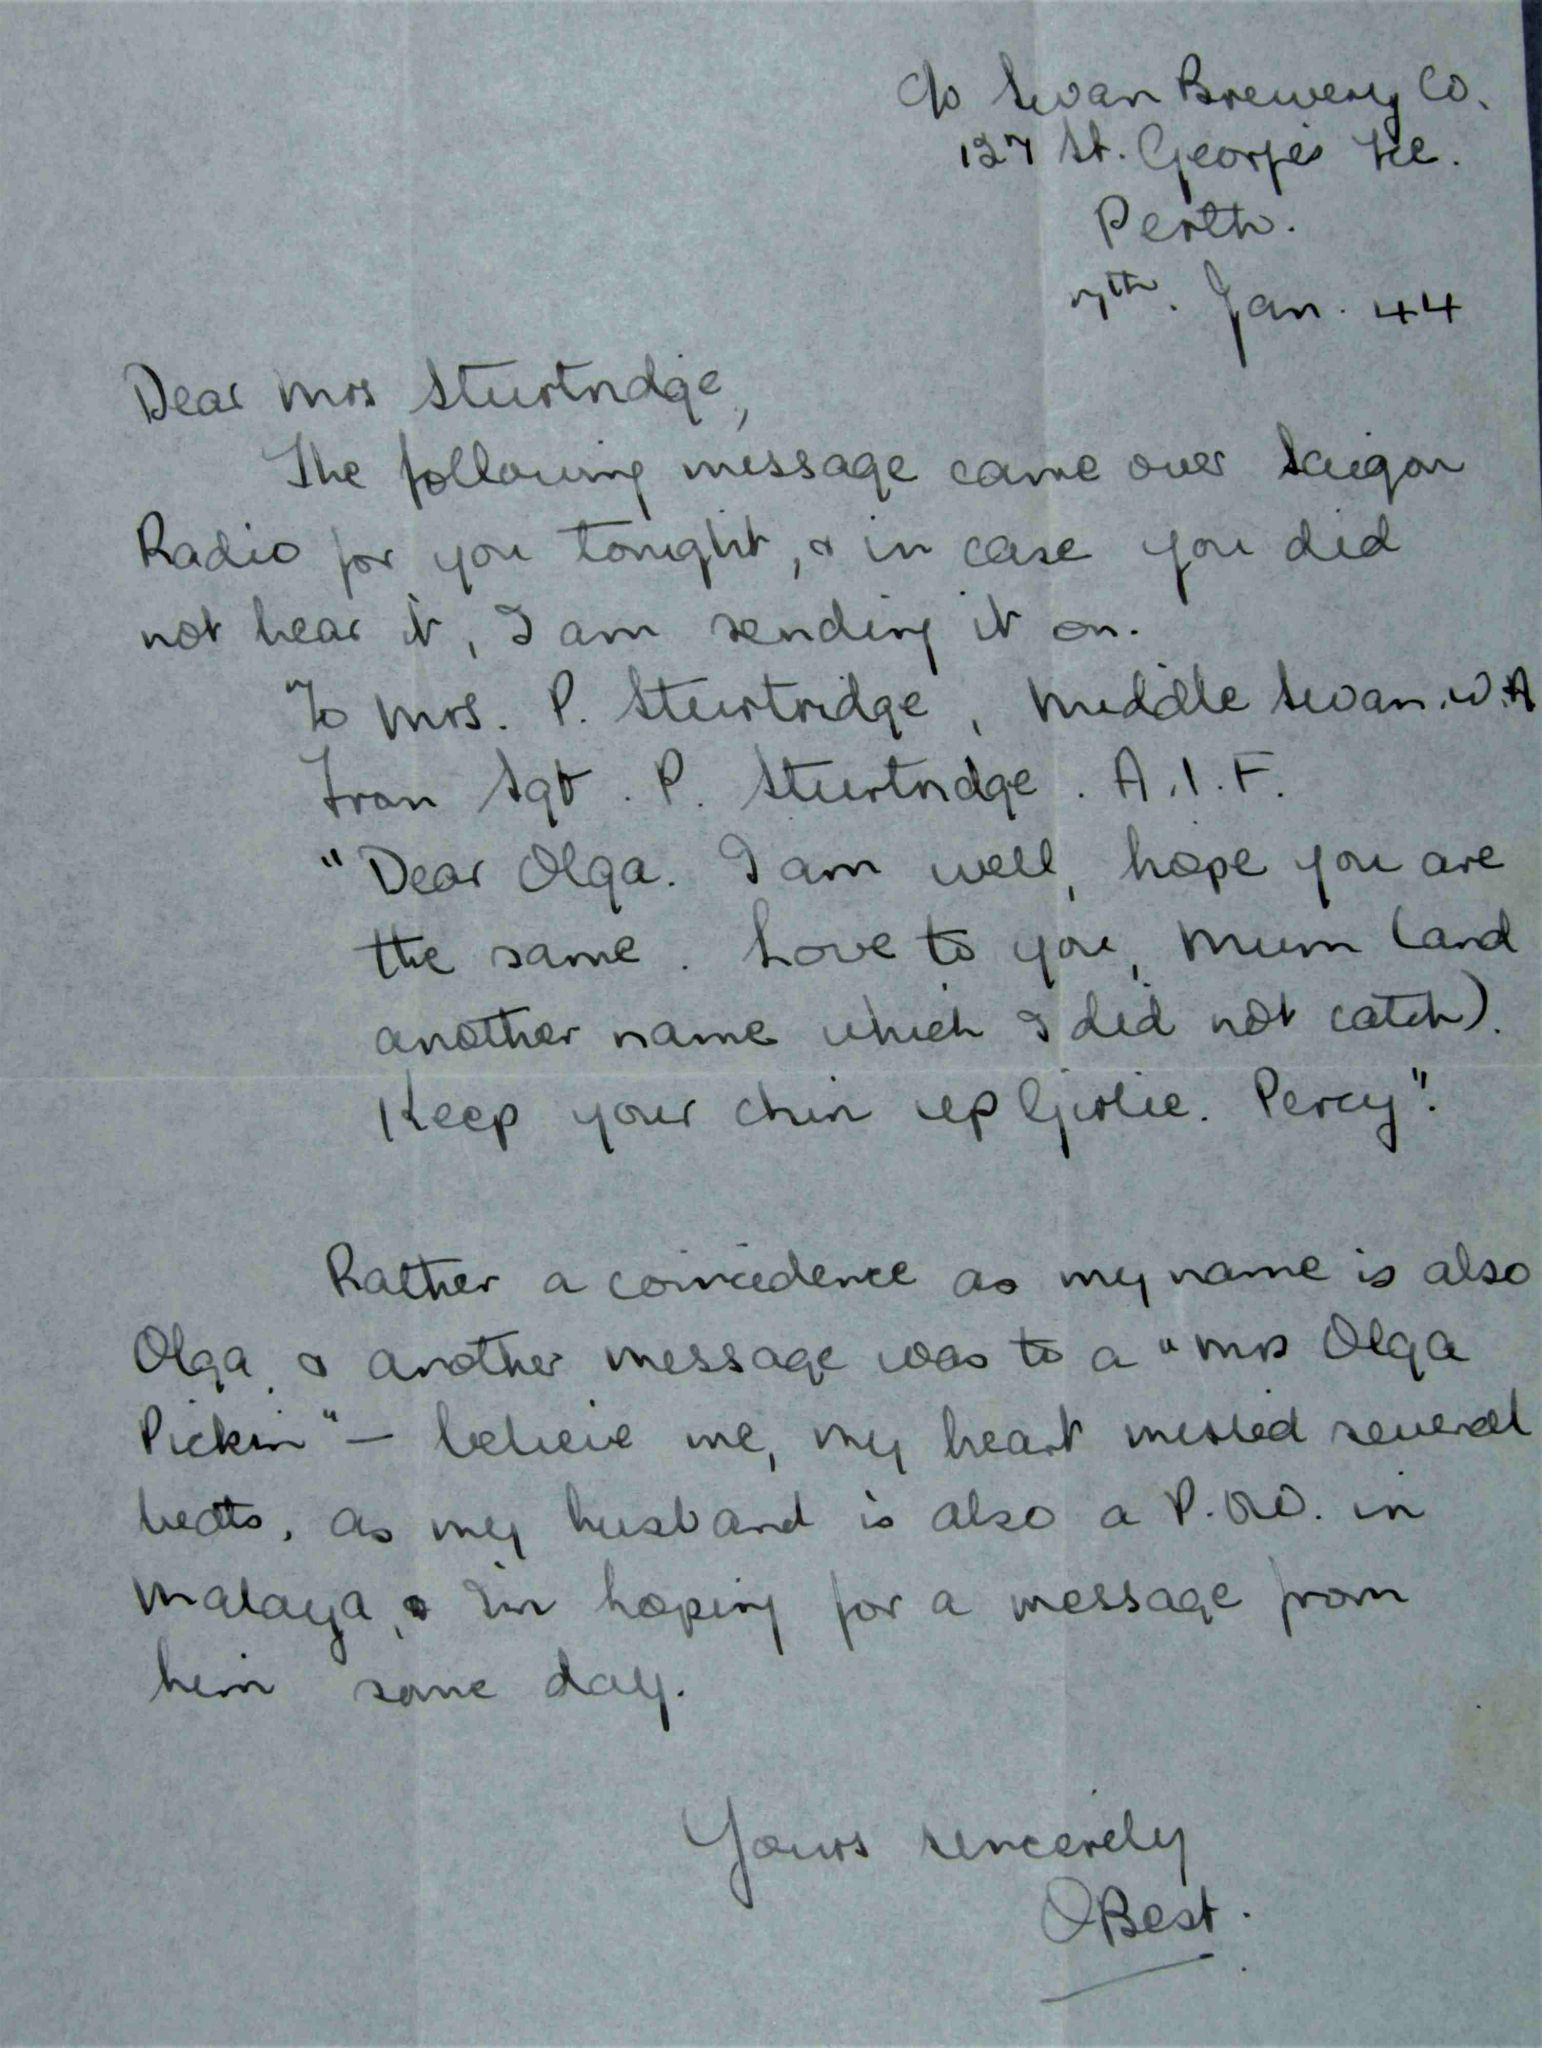 c/o Swan Brewery Co.
137 St. George's Tce.
Perth.
7th. Jan. 44
Dear Mrs Sturtridge,
The following message came over Saigon
Radio for you tonight, & in case you did
not hear it, I am sending it on.
To Mrs. P. Sturtridge, Middle Swan. W.A
From Sgt. P. Sturtridge. A.I.F.
"Dear Olga. I am well, hope you are
the same. Love to you, Mum (and
another name which I did not catch).
Keep your chin up Girlie. Percy".
Rather a coincidence as my name is also
Olga, & another message was to a "Mrs Olga
Pickin" — believe me, my heart missed several
beats, as my husband is also a P.O.W. in
Malaya, & I'm hoping for a message from
him some day.
Yours sincerely
O Best.